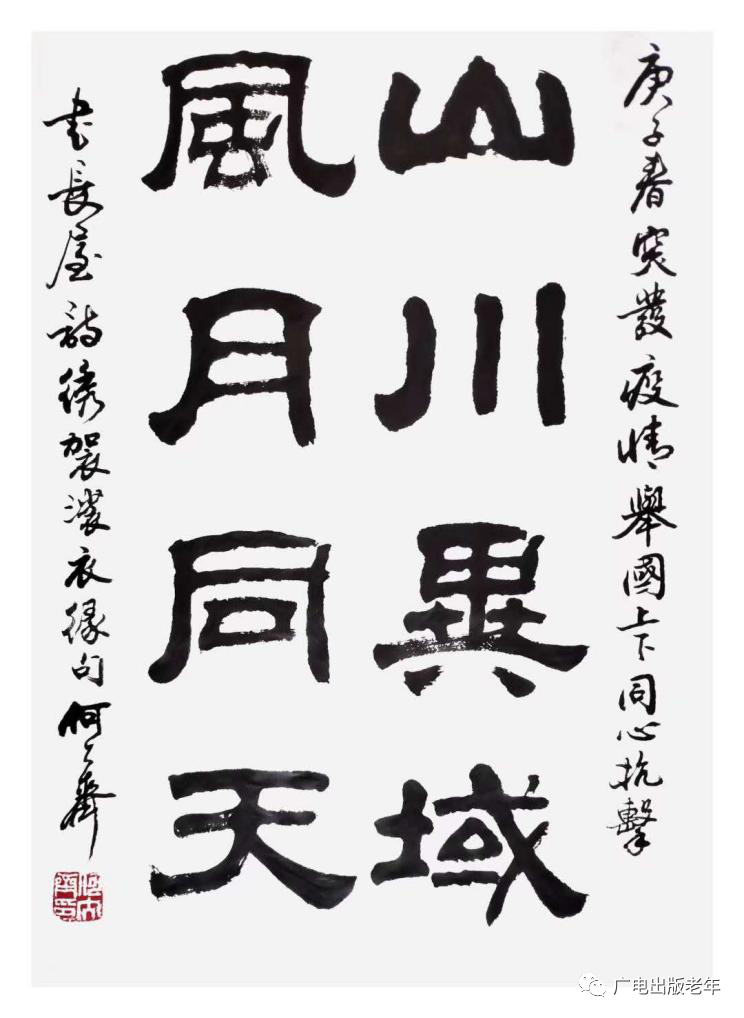 庚子春突發疫情舉國上下同心抗擊
山川異域
風月同天
書長屋詩繡袈裟衣緣句 何大齊
广电出版老年